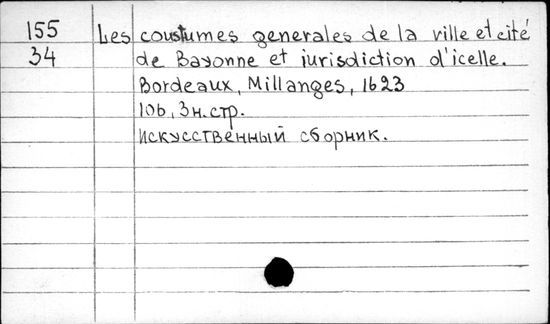 155 Les coustumes generales de la ville et cité
34 de Bayonne et iurisdiction d'icelle.
Bordeaux, Millanges, 1623
106, 3 н. стр.
Искусственный сборник.